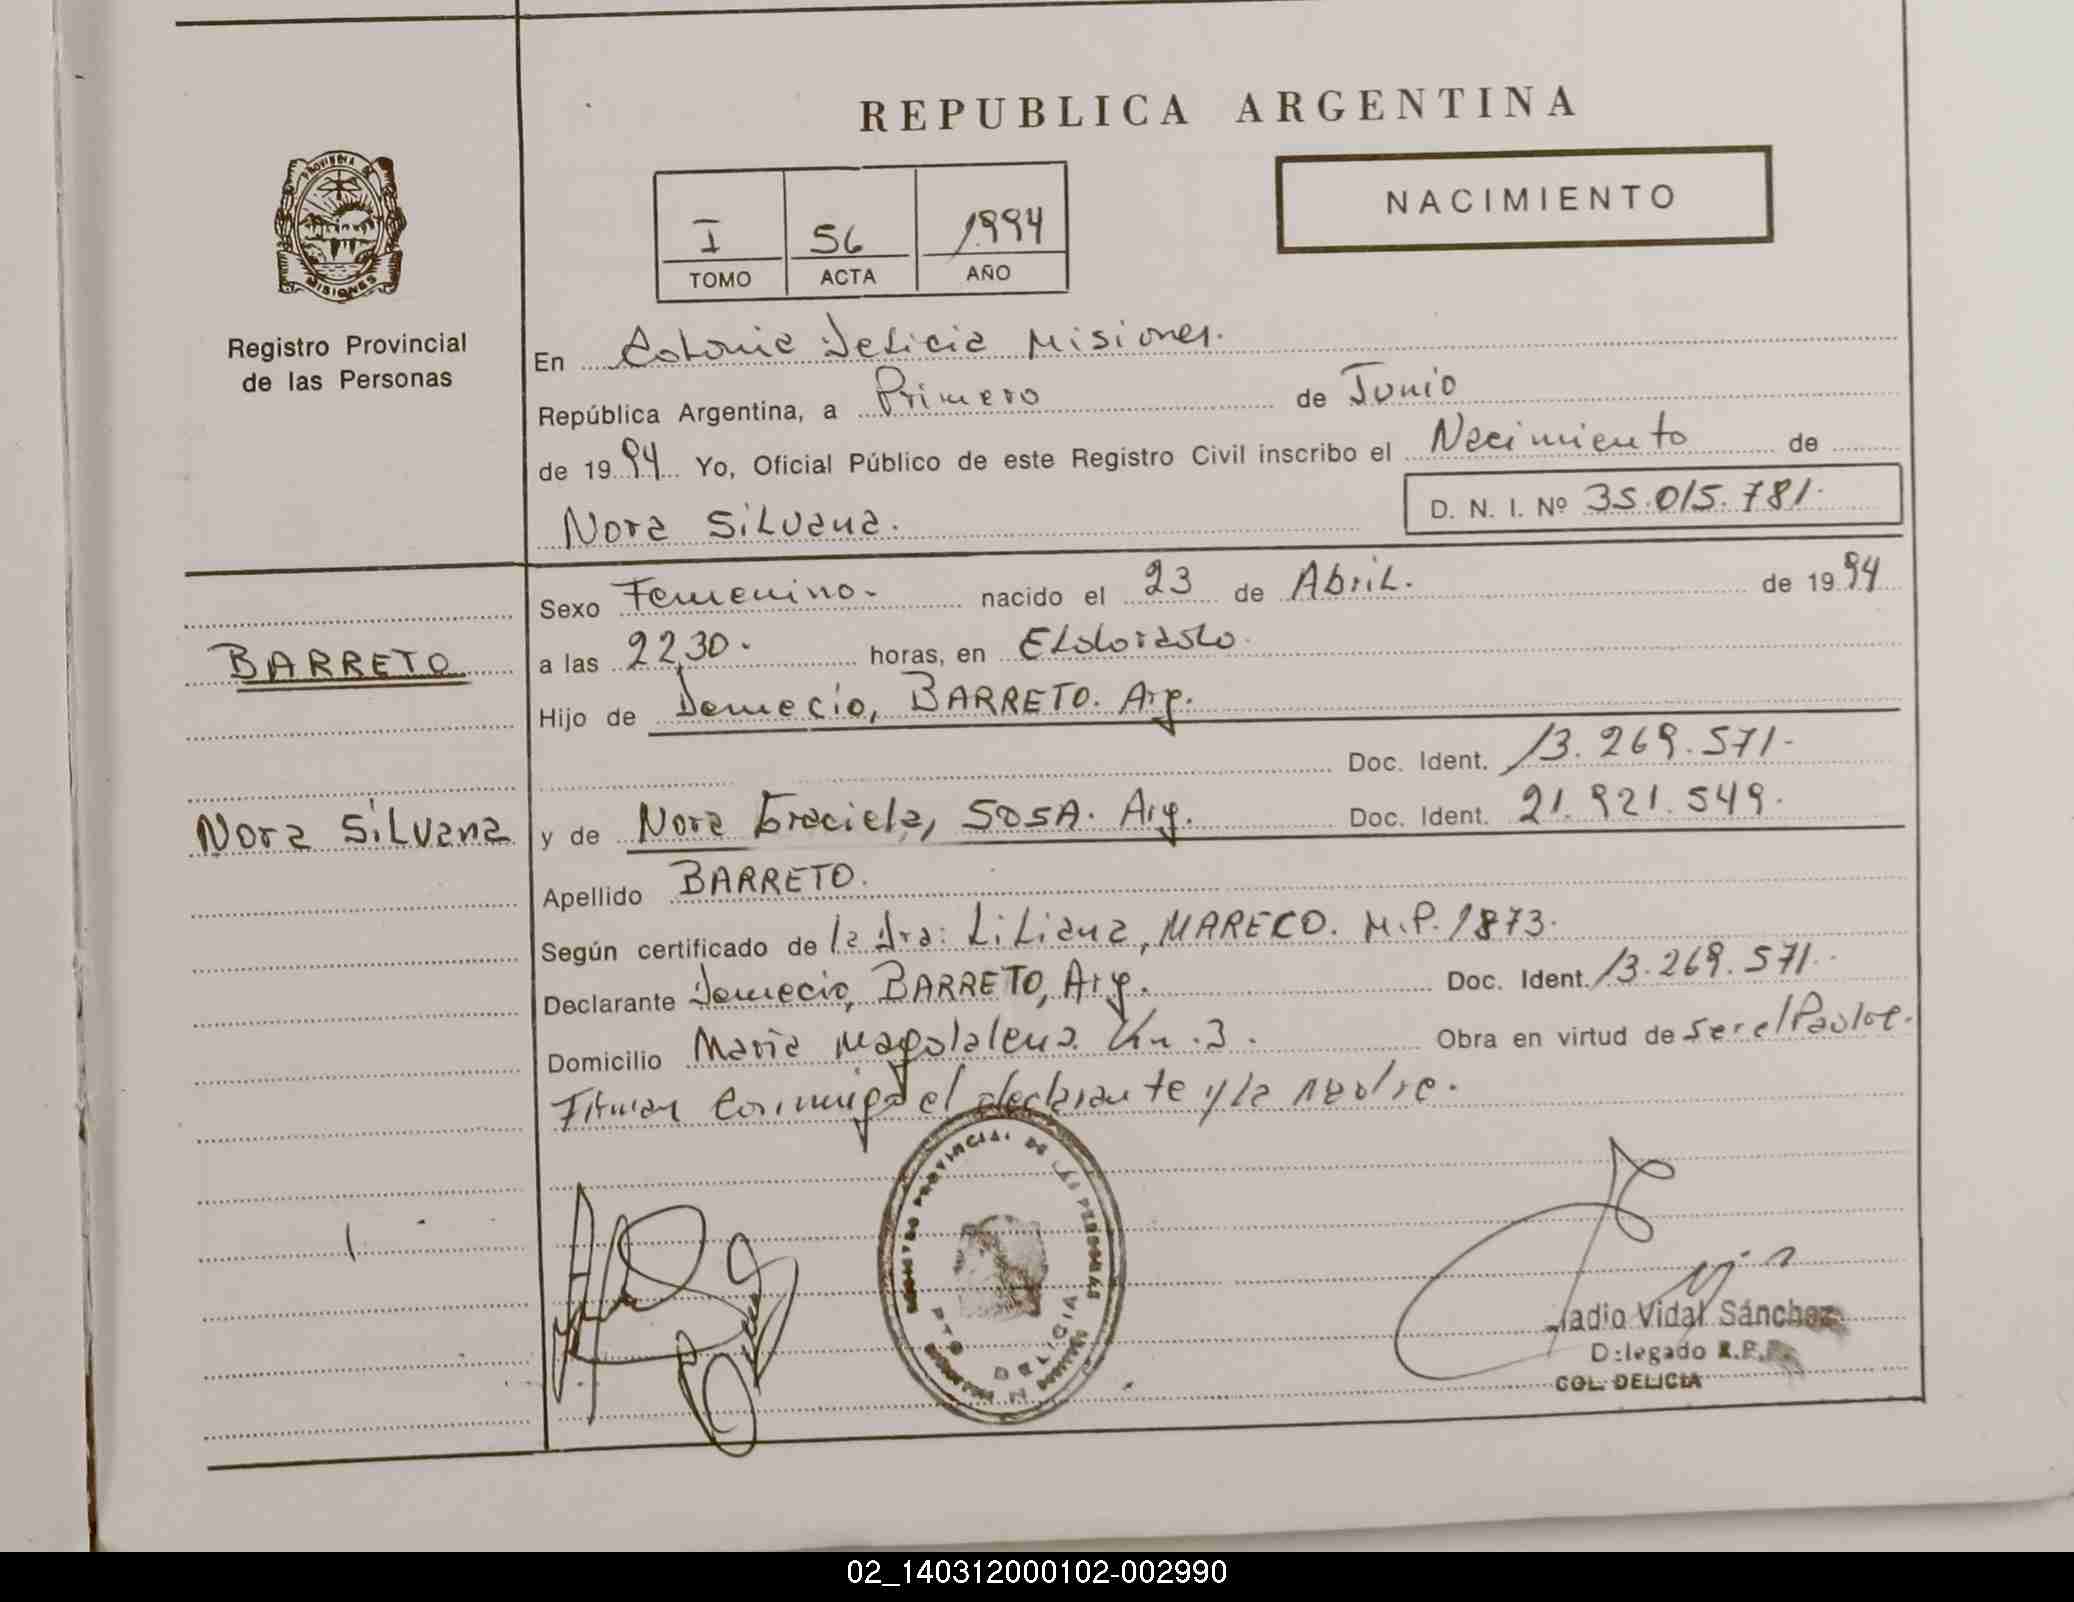 REPUBLICA ARGENTINA
PROVINCIA DE
MISIONES
Registro Provincial
de las Personas
I
56
1994
TOMO
ACTA
AÑO
NACIMIENTO
En Colonia Delicia Misiones.
República Argentina, a Primero de Junio
de 1994 Yo, Oficial Público de este Registro Civil inscribo el Nacimiento de
Nora Silvana.
D. N. I. Nº 35.015.781.
BARRETO
Nora Silvana
Sexo Femenino. nacido el 23 de Abril. de 1994
a las 22,30. horas, en Eldorado.
Hijo de Demecio, BARRETO. Arg.
Doc. Ident. 13.269.571.
y de Nora Graciela, SOSA. Arg. Doc. Ident. 21.921.549.
Apellido BARRETO.
Según certificado de la Dra: Liliana, MARECO. M.P. 1873.
Declarante Demecio, BARRETO, Arg. Doc. Ident. 13.269.571.
Domicilio Maria Magdalena Km. 3. Obra en virtud de ser el Padre.
Firman conmigo el declarante y la madre.
PROVINCIAL DE LAS PERSONAS
PTO DELICIA
Vidal Sánchez
Delegado R.P.P.
COL. DELICIA
02_140312000102-002990